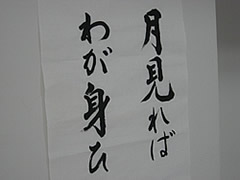 月見れば
わが身ひ